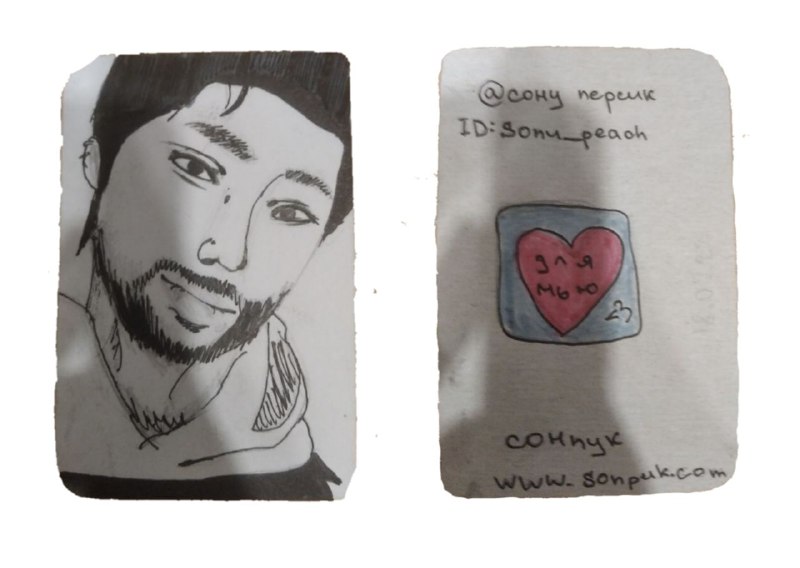 @сону персик
ID: Sonu_peach
для
мью
сонпук
www.sonpuk.com